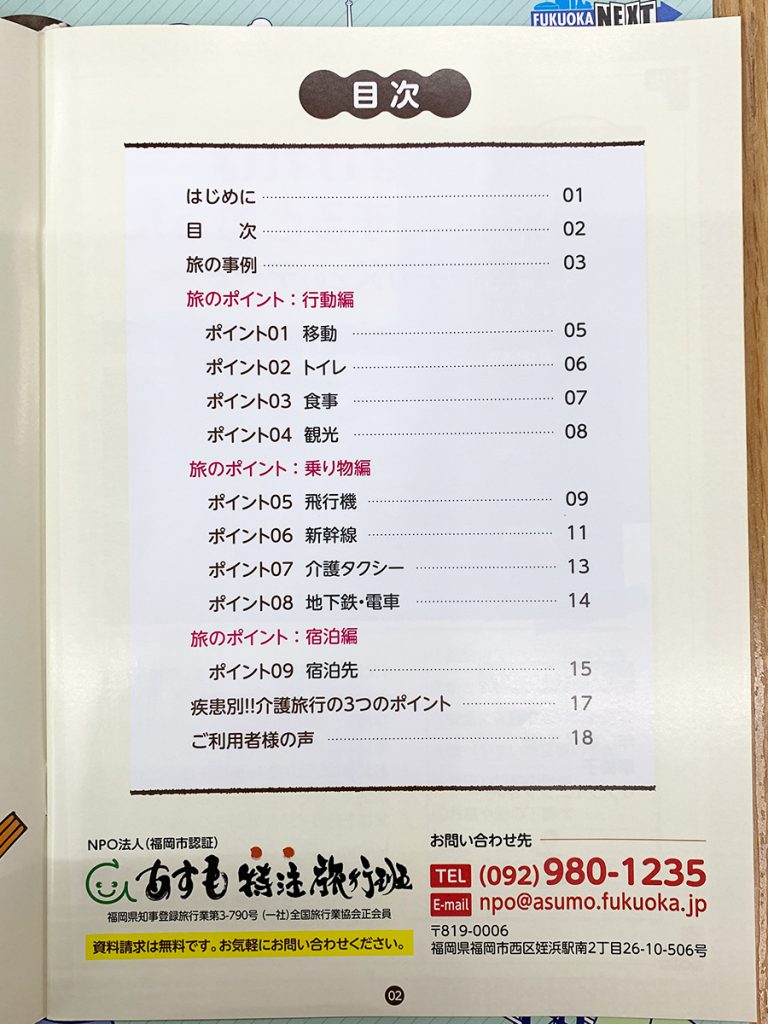 FUKUOKA NEXT
目次
はじめに 01
目 次 02
旅の事例 03
旅のポイント：行動編
ポイント01 移動 05
ポイント02 トイレ 06
ポイント03 食事 07
ポイント04 観光 08
旅のポイント：乗り物編
ポイント05 飛行機 09
ポイント06 新幹線 11
ポイント07 介護タクシー 13
ポイント08 地下鉄・電車 14
旅のポイント：宿泊編
ポイント09 宿泊先 15
疾患別!!介護旅行の3つのポイント 17
ご利用者様の声 18
NPO法人（福岡市認証）
あすも 特注旅行班
福岡県知事登録旅行業第3-790号 （一社）全国旅行業協会正会員
資料請求は無料です。お気軽にお問い合わせください。
お問い合わせ先
TEL (092)980-1235
E-mail npo@asumo.fukuoka.jp
〒819-0006
福岡県福岡市西区姪浜駅南2丁目26-10-506号
02